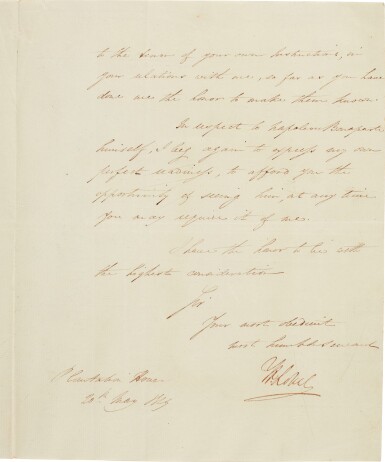 to the tenor of your own Instructions, in
your relations with me, so far as you have
done me the honor to make them known.
In respect to Napoleon Bonaparte
himself, I beg again to express my own
perfect readiness, to afford you the
opportunity of seeing him, at any time
you may require it of me.
I have the honor to be with
the highest consideration
Sir
Your most obedient
most humble servant
H Lowe
Plantation House
20th May